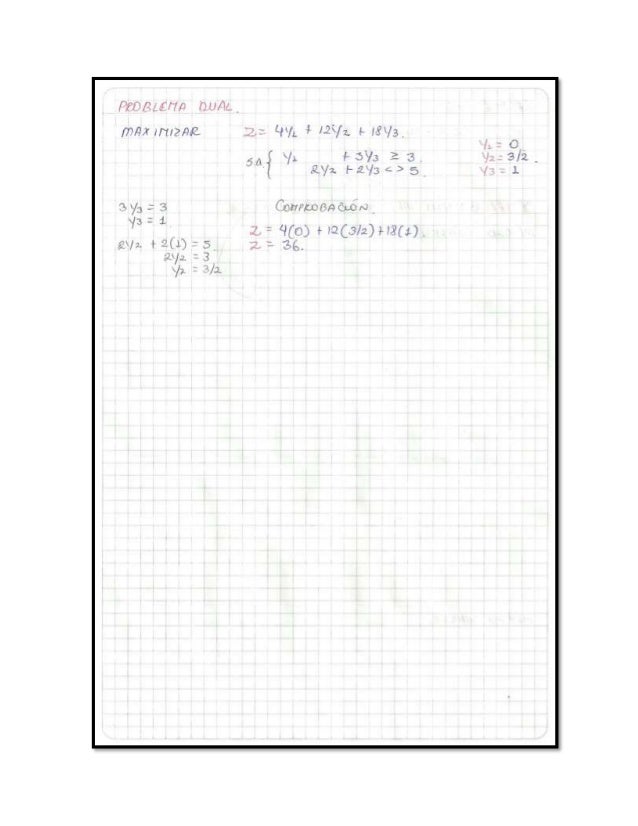 PROBLEMA DUAL.
MAXIMIZAR Z = 4Y1 + 12Y2 + 18Y3.
S.a. { Y1 + 3Y3 ≥ 3.
2Y2 + 2Y3 <> 5.
Y1 = 0
Y2 = 3/2.
Y3 = 1
3Y3 = 3
Y3 = 1.
2Y2 + 2(1) = 5.
2Y2 = 3
Y2 = 3/2
COMPROBACIÓN.
Z = 4(0) + 12(3/2) + 18(1)
Z = 36.